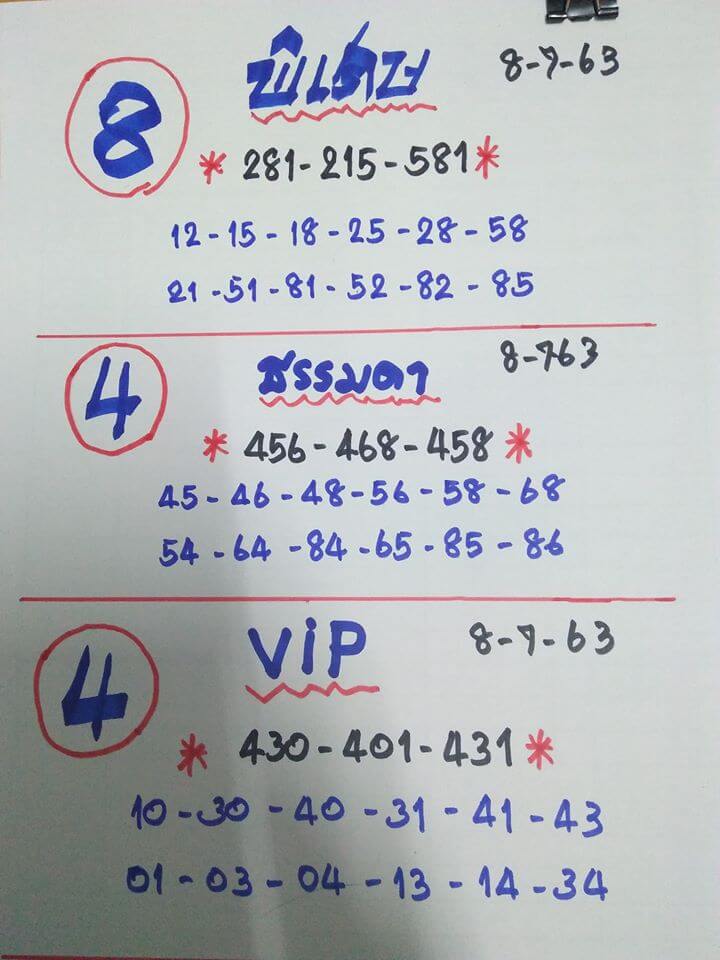 พิเศษ 8-7-63
8
* 281-215-581 *
12-15-18-25-28-58
21-51-81-52-82-85
ธรรมดา 8-763
4
* 456-468-458 *
45-46-48-56-58-68
54-64-84-65-85-86
ViP 8-7-63
4
* 430-401-431 *
10-30-40-31-41-43
01-03-04-13-14-34